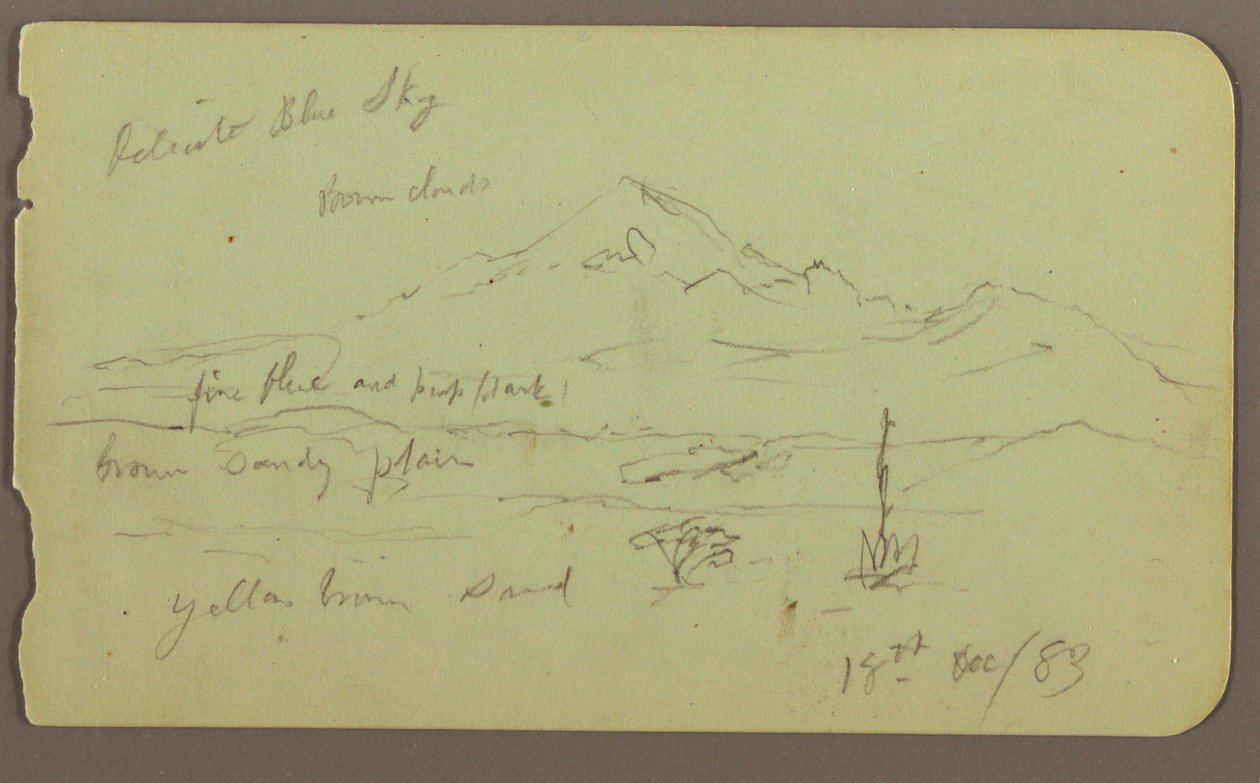 Delicate Blue Sky
Brown clouds
fine blue and purp (dark)
brown Sandy plain
Yellow brown Sand
18th Dec/83